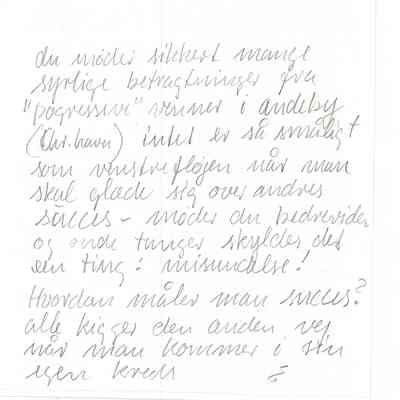 du møder sikkert mange
syrlige betragtninger fra
"pogressive" venner i andeby
(Chr. havn) intet er så småligt
som venstrefløjen når man
skal glæde sig over andres
succes – møder du bedrevidende
og onde tunger skyldes det
een ting: misundelse!
Hvordan måler man succes?
alle kigger den anden vej
når man kommer i sin
egen kreds